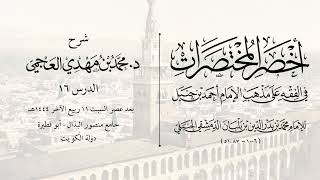 أخصر المختصرات
في الفقه على مذهب الإمام أحمد بن حنبل
للإمام محمد بن بدر الدين بن بلبان الدمشقي الحنبلي
(١٠٠٦ - ١٠٨٣هـ)
شرح
د. محمد بن مهدي العجمي
الدرس ١٦
بعد عصر السبت ١١ ربيع الآخر ١٤٤٤هـ
جامع منصور البدال - أبو فطيرة
دولة الكويت